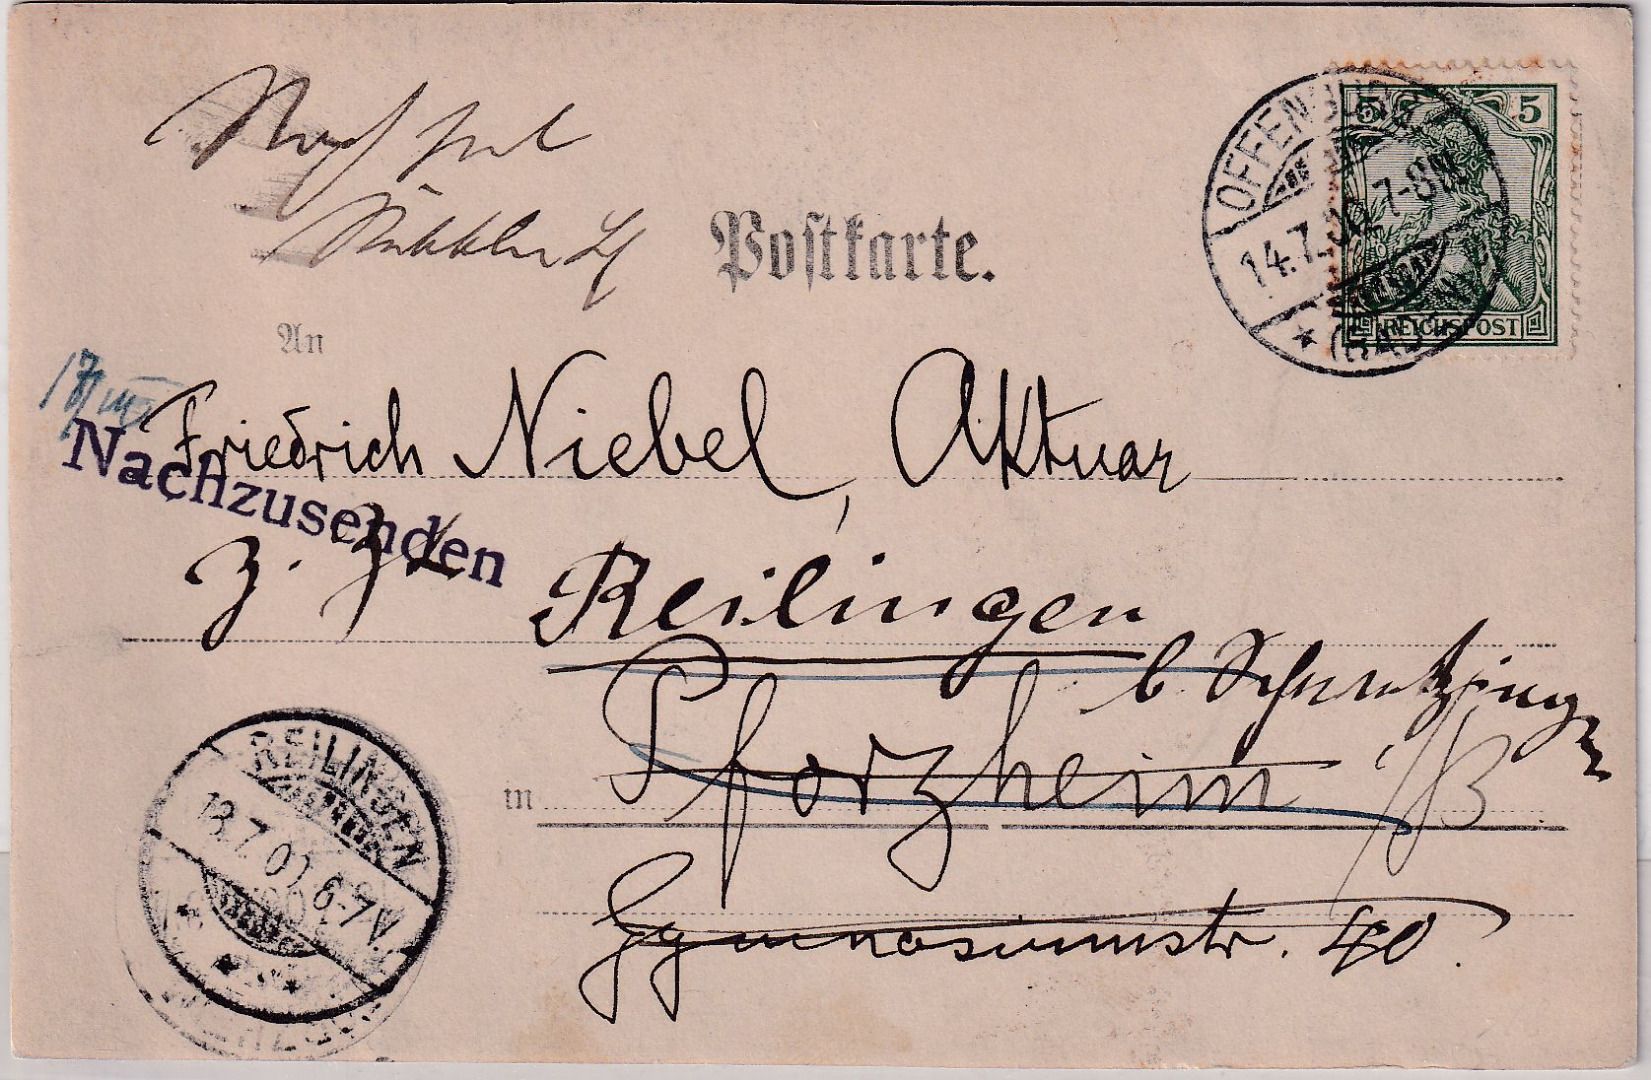 Postkarte.
OFFENBURG
14.7.02 7-8N
* (BADEN)
5 5
REICHSPOST
An
Nachzusenden
Friedrich Niebel, Aktuar
z. Zt. Reilingen
b. Schwetzingen
in Pforzheim i/B
Gymnasiumstr. 40.
REILINGEN
18.7.02 6-7V.